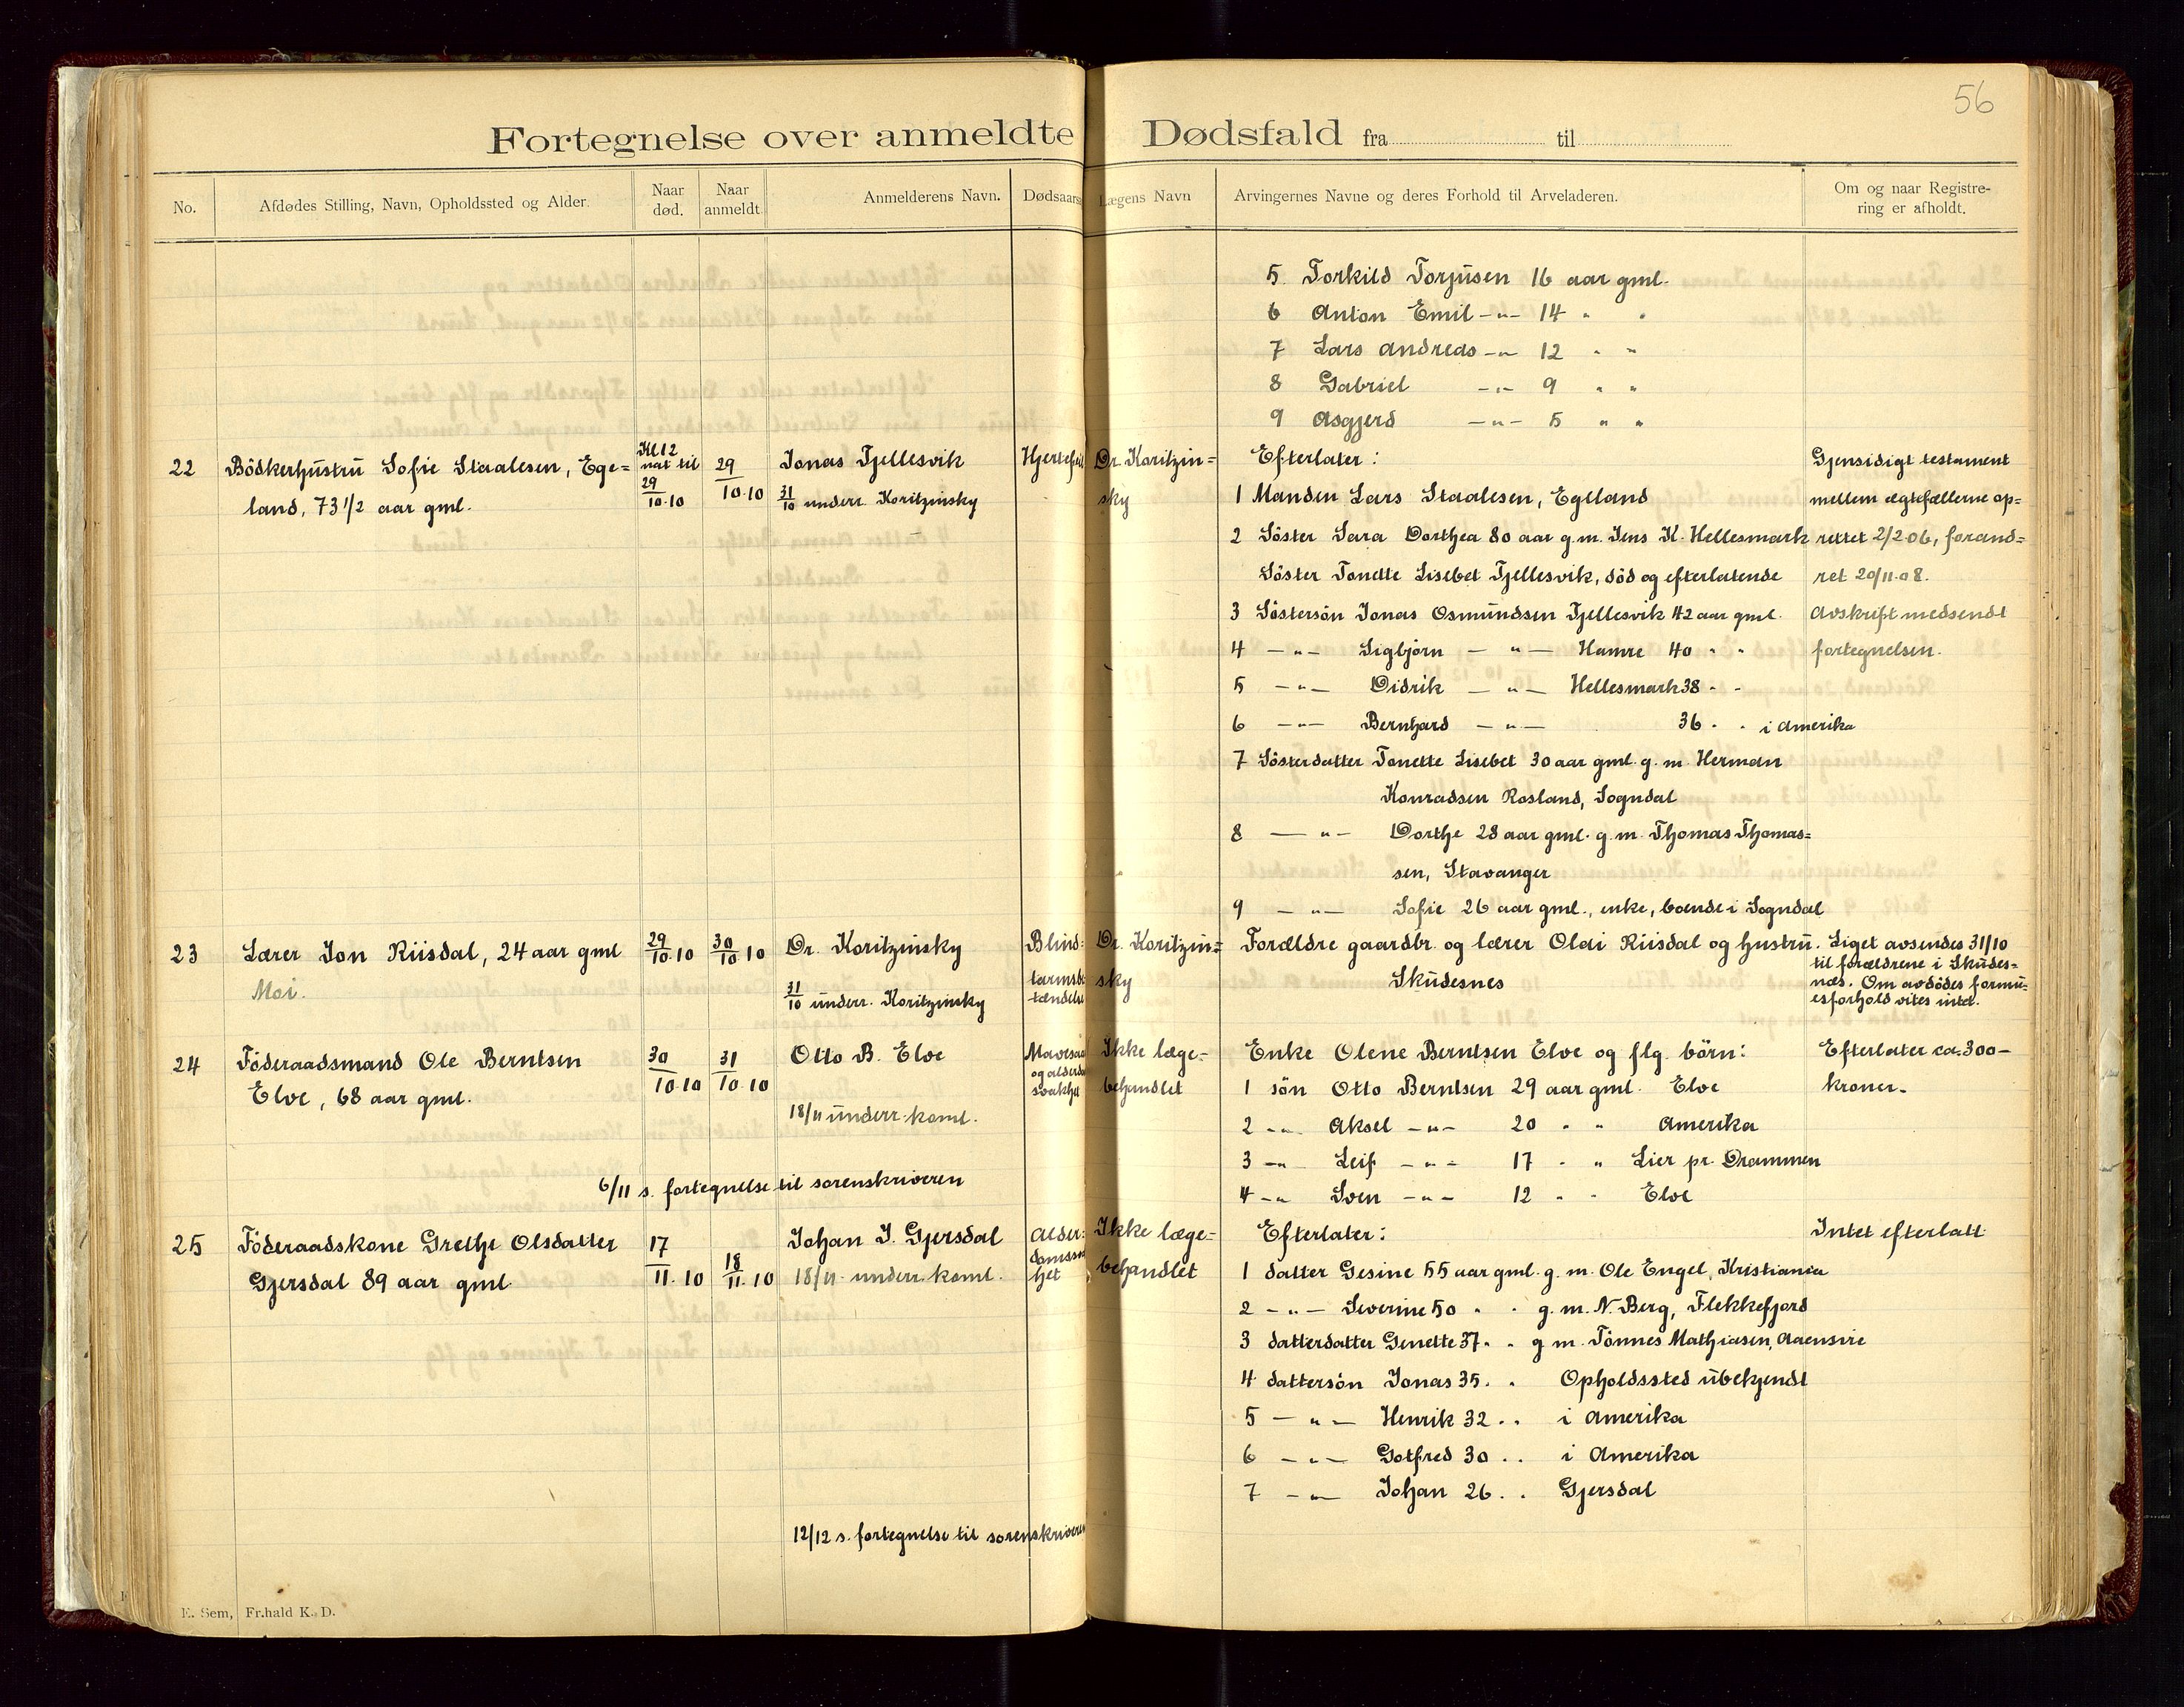 56
Fortegnelse over anmeldte Dødsfald fra til
No.
Afdødes Stilling, Navn, Opholdssted og Alder.
Naar død.
Naar anmeldt.
Anmelderens Navn.
Dødsaars
Lægens Navn
Arvingernes Navne og deres Forhold til Arveladeren.
Om og naar Registre-
ring er afholdt.
5 Torkild Torjusen 16 aar gml.
6 Anton Emil -"- 14 " "
7 Lars Andreas -"- 12 " "
8 Gabriel -"- 9 " "
9 Asgjerd -"- 5 " "
22 Bödkerhustru Sofie Staalesen, Ege=
land, 73 1/2 aar gml.
Kl 12
nat til
29/10.10
29/10.10
Jonas Fjellesvik
31/10 underr. Koritzinsky
Hjertefeil
Dr. Koritzin=
sky
Efterlater:
1 Manden Lars Staalesen, Egeland
2 Söster Sara Dorthea 80 aar g.m. Jens K. Hellesmark
Söster Tonette Lisebet Fjellesvik, död og efterlatende
3 Söstersön Jonas Osmundsen Fjellesvik 42 aar gml.
4 -"- Sigbjörn -"- Hamre 40 " "
5 -"- Didrik -"- Hellesmark 38 " "
6 -"- Bernhard -"- 36 " " i Amerika
7 Sösterdatter Tonette Lisebet 30 aar gml. g. m. Herman
Konradsen Rosland, Sogndal
8 -"- Dorthe 28 aar gml. g. m. Thomas Thomas=
sen, Stavanger
9 -"- Sofie 26 aar gml., enke, boende i Sogndal
Gjensidigt testament
mellem ægtefællerne op=
rettet 2/2.06, forand=
ret 20/11.08.
Avskrift medsendt
fortegnelsen.
23 Lærer Jon Riisdal, 24 aar gml
Moi.
29/10.10
30/10 10
Dr. Koritzinsky
31/10 underr. Koritzinsky
Blind=
tarmsbe
tændelse
Dr. Koritzin=
sky
Forældre gaardbr. og lærer Olai Riisdal og hustru.
Skudesnes
Liget avsendes 31/10
til forældrene i Skudes=
nes. Om avdödes formu=
esforhold vites intet.
24 Föderaadsmand Ole Berntsen
Elve, 68 aar gml.
30/10.10
31/10.10
Otto B. Elve
18/11 underr. koml.
Mavesaar
og alderdoms
svakhet
Ikke læge-
behandlet
Enke Olene Berntsen Elve og flg. börn:
1 sön Otto Berntsen 29 aar gml. Elve
2 -"- Aksel -"- 20 " " Amerika
3 -"- Leif -"- 17 " " Lier pr. Drammen
4 -"- Sven -"- 12 " " Elve
Efterlater ca. 300-
kroner.
6/11 s. fortegnelse til sorenskriveren
25 Föderaadskone Grethe Olsdatter
Gjersdal 89 aar gml.
17/11.10
18/11.10
Johan J. Gjersdal
18/11 underr. koml.
Alder=
domssvak
het
Ikke læge-
behandlet
Efterlater:
1 datter Gesine 55 aar gml. g. m. Ole Engel, Kristiania
2 -"- Severine 50 " " g. m. N. Berg, Flekkefjord
3 datterdatter Genette 37 " " g. m. Tönnes Mathiasen, Aaensire
4 dattersön Jonas 35 " " Opholdssted ubekjendt
5 -"- Henrik 32 " " i Amerika
6 -"- Gotfred 30 " " i Amerika
7 -"- Johan 26 " " Gjersdal
Intet efterlatt
12/12 s. fortegnelse til sorenskriveren
E. Sem, Fr.hald K. D.